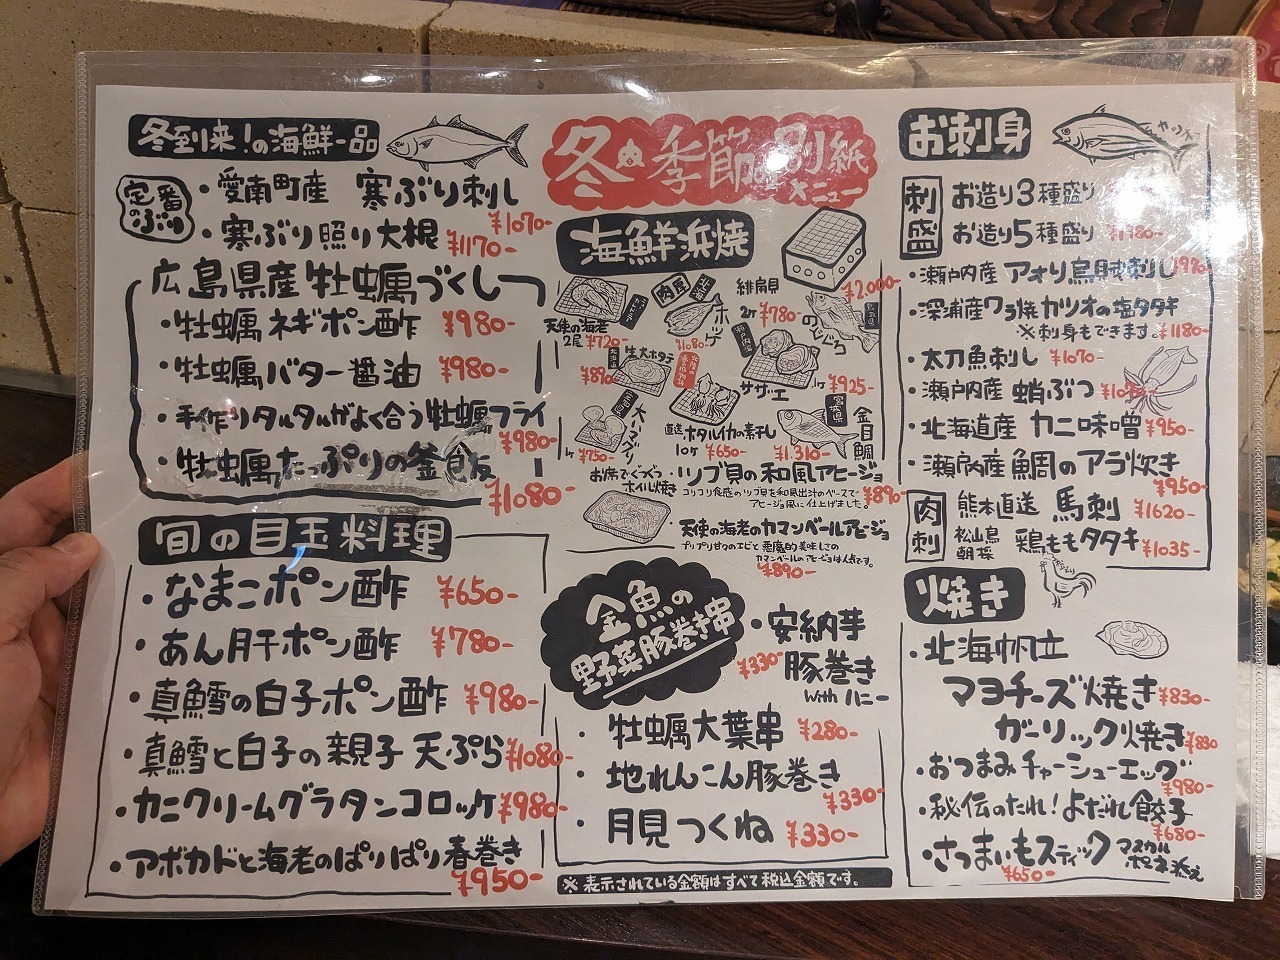 冬到来!の海鮮一品
定番のぶり
・愛南町産 寒ぶり刺し
¥1070-
・寒ぶり照り大根
¥1170-
広島県産牡蠣づくし
・牡蠣ネギポン酢 ¥980-
・牡蠣バター醤油 ¥980-
・手作りタルタルがよく合う牡蠣フライ
¥980-
・牡蠣たっぷりの釜飯
¥1080-
旬の目玉料理
・なまこポン酢 ¥650-
・あん肝ポン酢 ¥780-
・真鱈の白子ポン酢 ¥980-
・真鱈と白子の親子天ぷら ¥1080-
・カニクリームグラタンコロッケ ¥980-
・アボカドと海老のぱりぱり春巻き
¥950-
冬の季節の別紙
メニュー
海鮮浜焼
天使の海老
2尾 ¥720-
北海道
肉厚
ホッケ
¥1080-
緋扇貝
2ケ ¥780-
のドグロ
¥2,000-
生大ホタテ
¥890-
北海道
瀬戸内海
サザエ
1ケ ¥925-
大ハマグリ
1ケ ¥750-
直送 ホタルイカの素干し
10ケ ¥650-
宮城県
金目鯛
¥1,310-
お席でぐつぐつ
ホイル焼き
・ツブ貝の和風アヒージョ
コリコリ食感のツブ貝を和風出汁のベースで
アヒージョ風に仕上げました。
¥890-
天使の海老のカマンベールアヒージョ
プリプリ甘々のエビと悪魔的美味しさの
カマンベールのアヒージョは人気です。
¥890-
金魚の
野菜豚巻き串
・安納芋
豚巻き
withハニー
¥330-
・牡蠣大葉串 ¥280-
・地れんこん豚巻き
¥330-
・月見つくね ¥330-
※表示されている金額はすべて税込金額です。
お刺身
カツオ
刺盛
お造り3種盛り
お造り5種盛り ¥1980-
・瀬戸内産 アオリ烏賊刺し
・深浦産ワラ焼カツオの塩タタキ
※刺身もできます。 ¥1180-
・太刀魚刺し ¥1070-
・瀬戸内産 蛸ぶつ
・北海道産 カニ味噌 ¥950-
・瀬戸内産鯛のアラ炊き
¥950-
肉刺
熊本直送 馬刺 ¥1620-
松山鳥
朝採
鶏ももタタキ ¥1035-
焼き
・北海帆立
マヨチーズ焼き ¥830-
ガーリック焼き ¥830
・おつまみチャーシューエッグ
¥980-
・秘伝のたれ!よだれ餃子
¥680-
・さつまいもスティック マスカルポーネ添え
¥650-